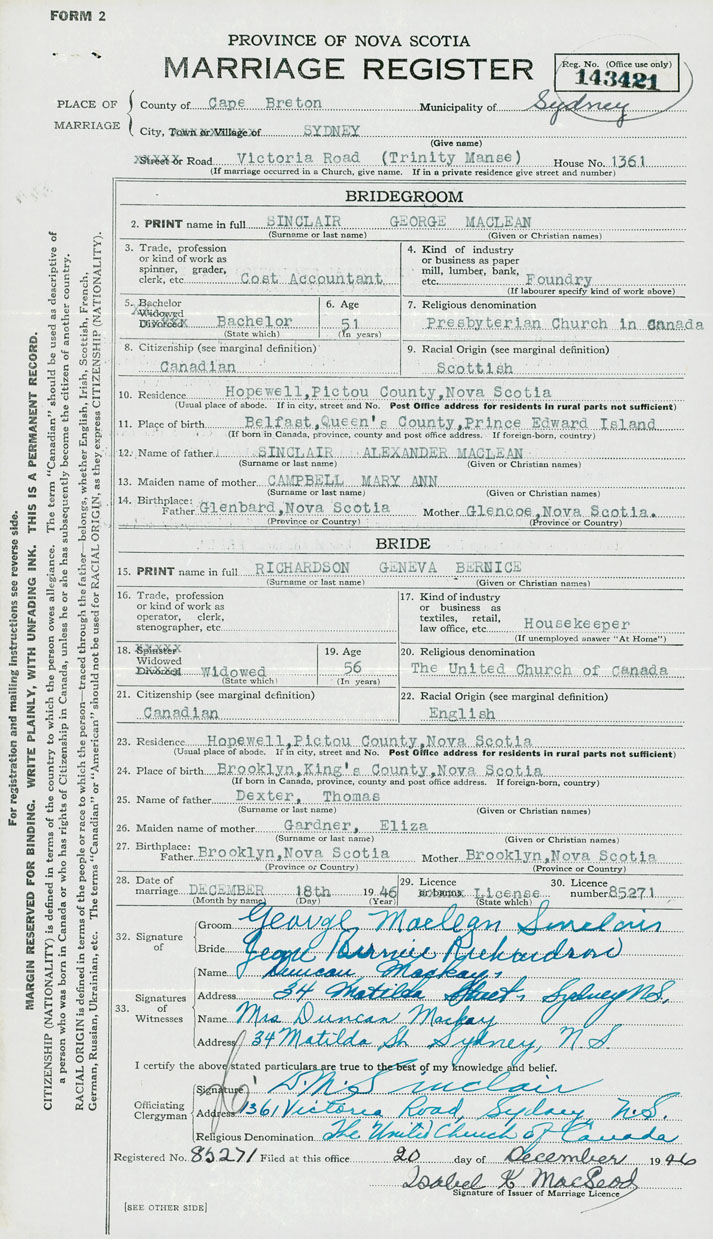 FORM 2
PROVINCE OF NOVA SCOTIA
MARRIAGE REGISTER
Reg. No. (Office use only)
143421
PLACE OF MARRIAGE
County of Cape Breton Municipality of Sydney
City, Town or Village of SYDNEY
(Give name)
Street or Road Victoria Road (Trinity Manse) House No. 1361
(If marriage occurred in a Church, give name. If in a private residence give street and number)
BRIDEGROOM
2. PRINT name in full SINCLAIR GEORGE MACLEAN
(Surname or last name) (Given or Christian names)
3. Trade, profession or kind of work as spinner, grader, clerk, etc. Cost Accountant
4. Kind of industry or business as paper mill, lumber, bank, etc. Foundry
(If labourer specify kind of work above)
5. Bachelor Widowed Divorced Bachelor
(State which)
6. Age 51
(In years)
7. Religious denomination
Presbyterian Church in Canada
8. Citizenship (see marginal definition)
Canadian
9. Racial Origin (see marginal definition)
Scottish
10. Residence Hopewell,Pictou County,Nova Scotia
(Usual place of abode. If in city, street and No. Post Office address for residents in rural parts not sufficient)
11. Place of birth Belfast,Queen's County,Prince Edward Island
(If born in Canada, province, county and post office address. If foreign-born, country)
12. Name of father SINCLAIR ALEXANDER MACLEAN
(Surname or last name) (Given or Christian names)
13. Maiden name of mother CAMPBELL MARY ANN
(Surname or last name) (Given or Christian names)
14. Birthplace: Father Glenbard,Nova Scotia Mother Glencoe,Nova Scotia.
(Province or Country) (Province or Country)
BRIDE
15. PRINT name in full RICHARDSON GENEVA BERNICE
(Surname or last name) (Given or Christian names)
16. Trade, profession or kind of work as operator, clerk, stenographer, etc.
17. Kind of industry or business as textiles, retail, law office, etc. Housekeeper
(If unemployed answer "At Home")
18. Spinster Widowed Divorced Widowed
(State which)
19. Age 56
(In years)
20. Religious denomination
The United Church of Canada
21. Citizenship (see marginal definition)
Canadian
22. Racial Origin (see marginal definition)
English
23. Residence Hopewell,Pictou County,Nova Scotia
(Usual place of abode. If in city, street and No. Post Office address for residents in rural parts not sufficient)
24. Place of birth Brooklyn,King's County,Nova Scotia
(If born in Canada, province, county and post office address. If foreign-born, country)
25. Name of father Dexter, Thomas
(Surname or last name) (Given or Christian names)
26. Maiden name of mother Gardner, Eliza
(Surname or last name) (Given or Christian names)
27. Birthplace: Father Brooklyn,Nova Scotia Mother Brooklyn,Nova Scotia
(Province or Country) (Province or Country)
28. Date of marriage DECEMBER 18th 1946
(Month by name) (Day) (Year)
29. Licence or banns License
(State which)
30. Licence number 85271
32. Signature of
Groom George Maclean Sinclair
Bride Bernice Richardson
33. Signatures of Witnesses
Name Duncan MacKay,
Address 34 Matilda Street, Sydney N.S.
Name Mrs Duncan MacKay
Address 34 Matilda St. Sydney, N.S.
I certify the above stated particulars are true to the best of my knowledge and belief.
Officiating Clergyman
Signature D. M. Sinclair
Address 1361 Victoria Road, Sydney, N.S.
Religious Denomination The United Church of Canada
Registered No. 85271 Filed at this office 20 day of December 1946
Isabel K MacLeod
Signature of Issuer of Marriage Licence
[SEE OTHER SIDE]
For registration and mailing instructions see reverse side.
MARGIN RESERVED FOR BINDING. WRITE PLAINLY, WITH UNFADING INK. THIS IS A PERMANENT RECORD.
CITIZENSHIP (NATIONALITY) is defined in terms of the country to which the person owes allegiance. The term "Canadian" should be used as descriptive of
a person who was born in Canada or who has rights of Citizenship in Canada, unless he or she has subsequently become the citizen of another country.
RACIAL ORIGIN is defined in terms of the people or race to which the person—traced through the father—belongs, whether English, Irish, Scottish, French,
German, Russian, Ukrainian, etc. The terms "Canadian" or "American" should not be used for RACIAL ORIGIN, as they express CITIZENSHIP (NATIONALITY).